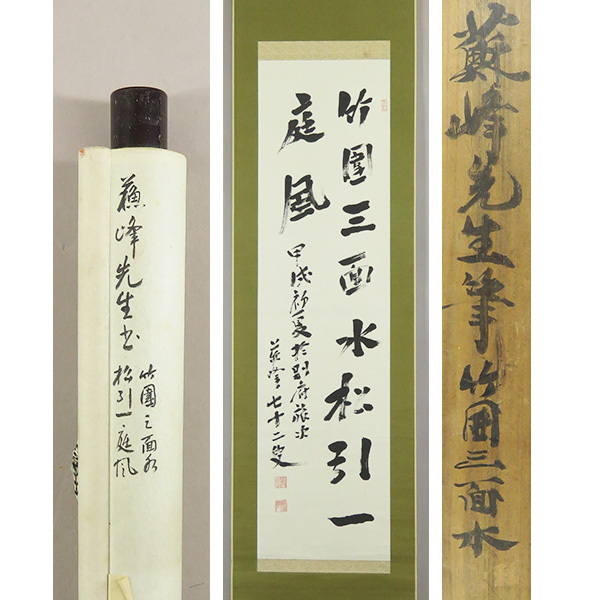 蘇峰先生書
竹圍三面水
松引一庭風
竹圍三面水松引一
庭風
甲戌初夏於別府旅次
蘇峰七十二叟
蘇峰先生筆竹囲三面水